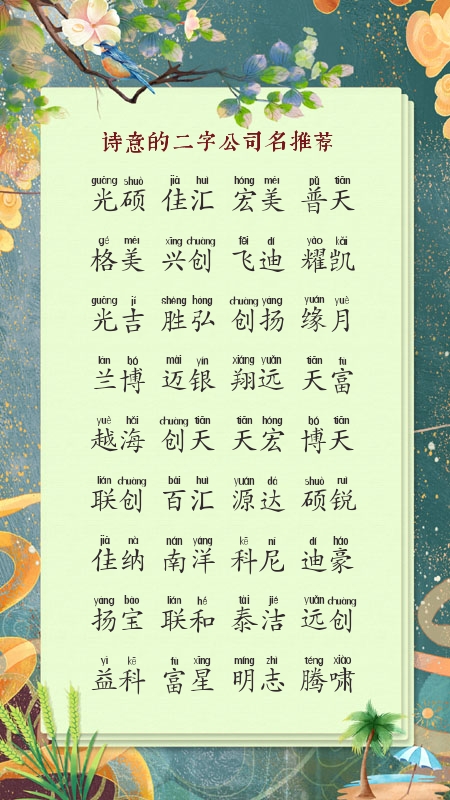 诗意的二字公司名推荐
guāng shuò jiā huì hóng měi pǔ tiān
光硕 佳汇 宏美 普天
gé měi xīng chuàng fēi dí yào kǎi
格美 兴创 飞迪 耀凯
guāng jí shèng hóng chuàng yáng yuán yuè
光吉 胜弘 创扬 缘月
lán bó mài yín xiáng yuǎn tiān fù
兰博 迈银 翔远 天富
yuè hǎi chuàng tiān tiān hóng bó tiān
越海 创天 天宏 博天
lián chuàng bǎi huì yuán dá shuò ruì
联创 百汇 源达 硕锐
jiā nà nán yáng kē ní dí háo
佳纳 南洋 科尼 迪豪
yáng bǎo lián hé tài jié yuǎn chuàng
扬宝 联和 泰洁 远创
yì kē fù xīng míng zhì téng xiào
益科 富星 明志 腾啸